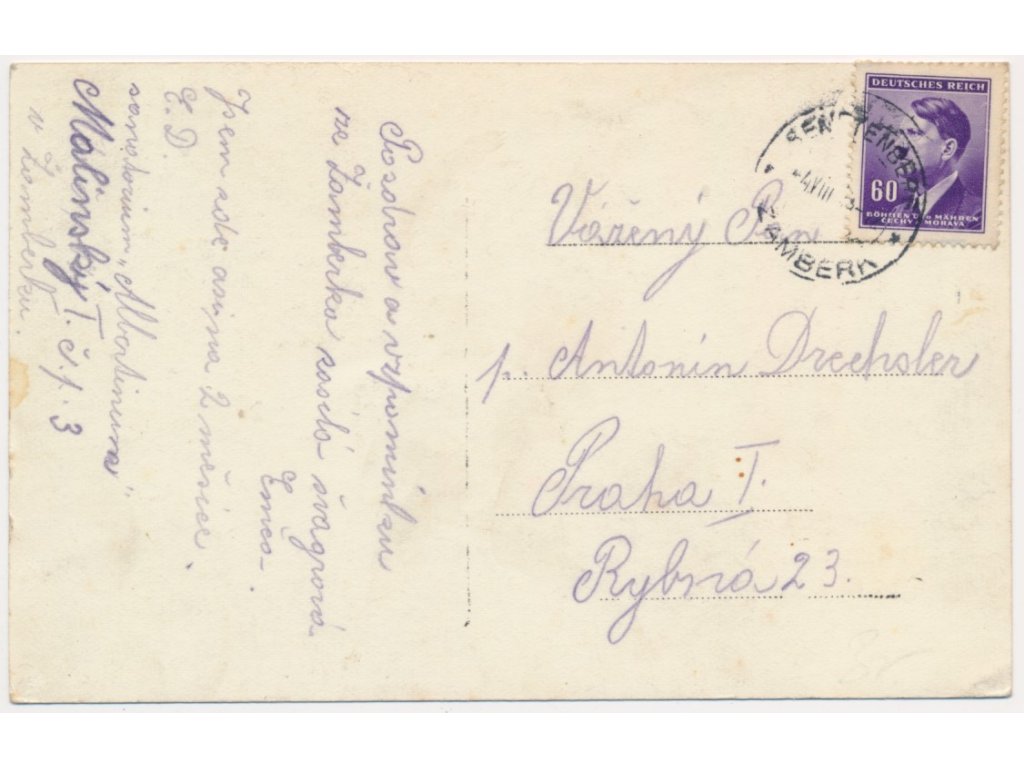 Pozdrav a vzpomínku
ze Žamberka zasílá švagrová
Emča.
Jsem zde asi na 2 měsíce.
E. D.
sanatorium „Albertinum"
Malinský I. č. p. 3
v Žamberku.
DEUTSCHES REICH
60
BÖHMEN U. MÄHREN
ČECHY MORAVA
SENFTENBERG
ŽAMBERK
Vážený Pan
p. Antonín Drechsler
Praha I.
Rybná 23.